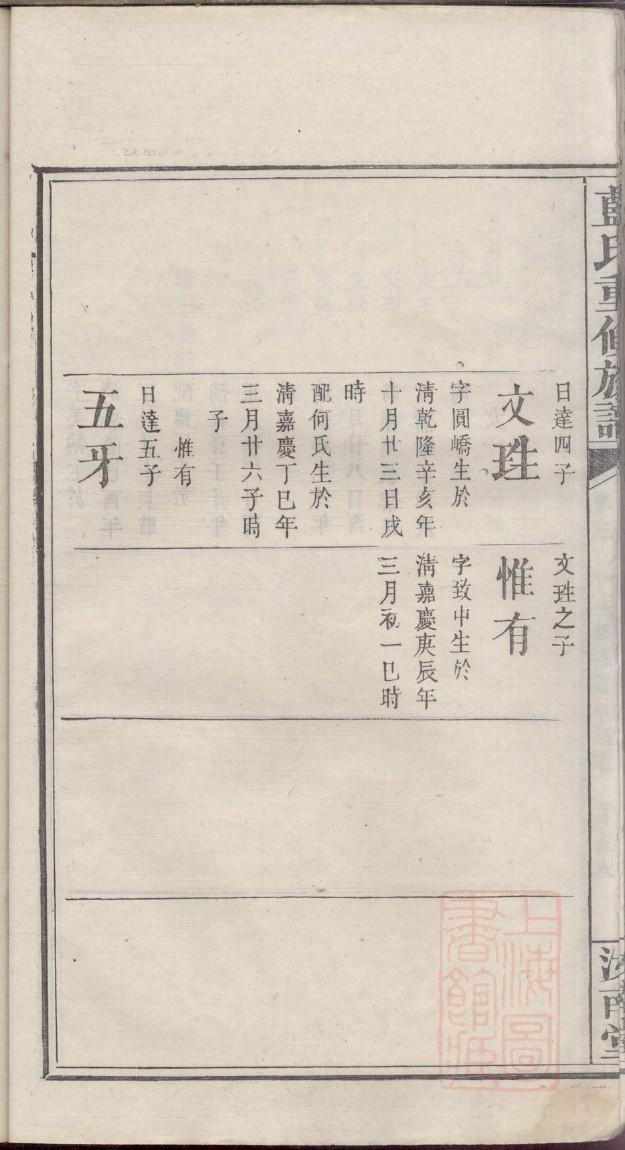 藍氏重修族譜
汝南堂
日達四子
文珄
字圓嶠生於
淸乾隆辛亥年
十月廿三日戌
時
配何氏生於
淸嘉慶丁巳年
三月廿六子時
子
惟有
日達五子
五牙
文珄之子
惟有
字致中生於
淸嘉慶庚辰年
三月初一巳時
上海圖
書館藏